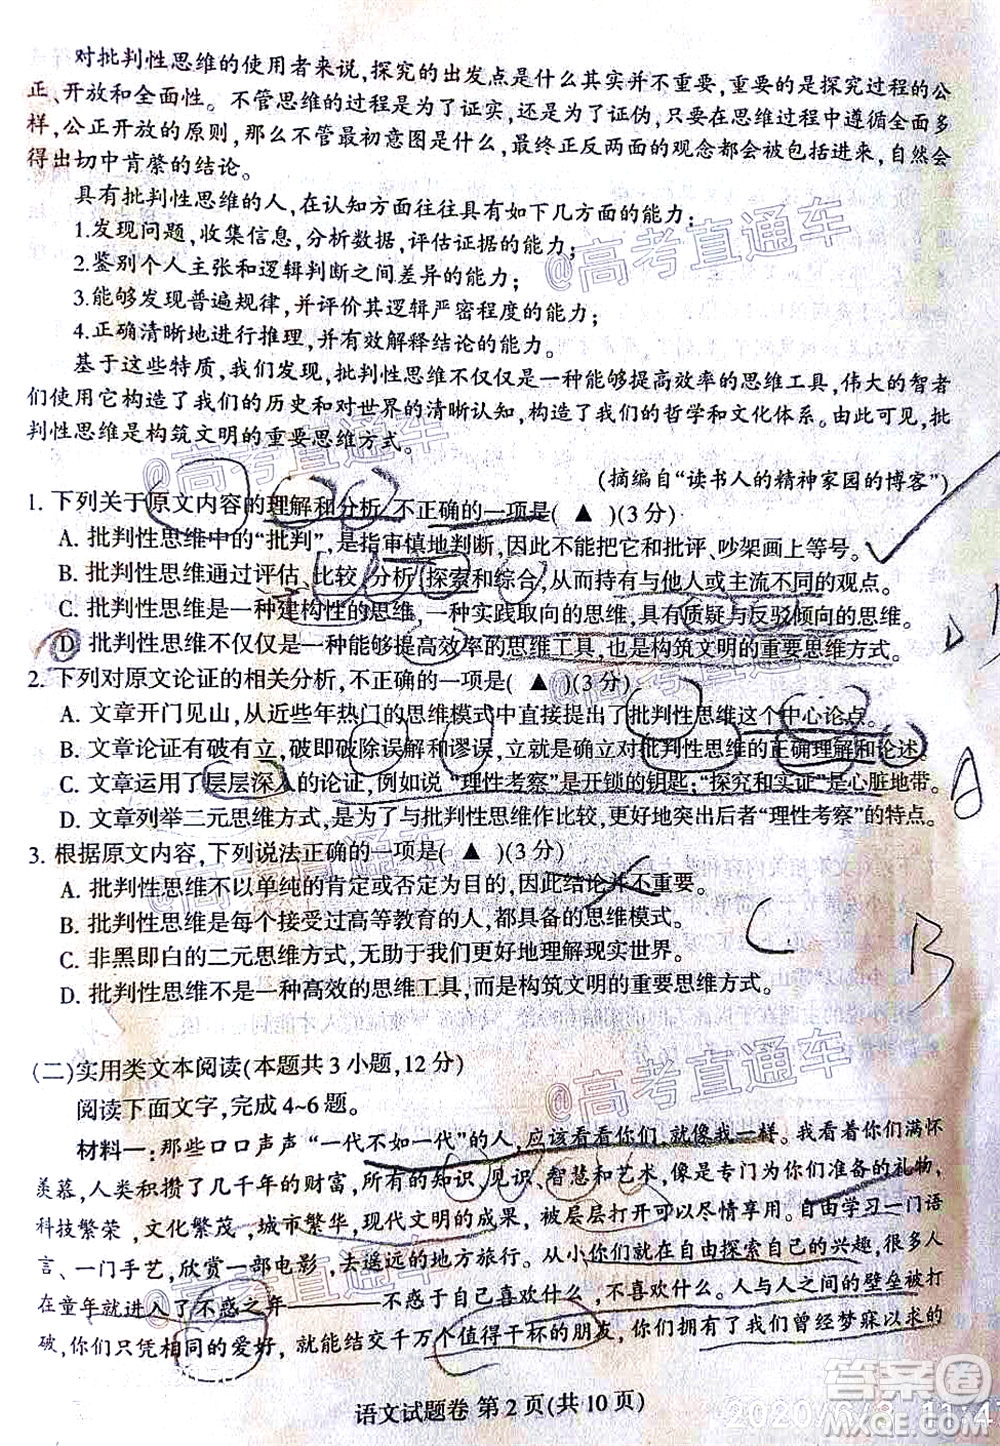 对批判性思维的使用者来说,探究的出发点是什么其实并不重要,重要的是探究过程的公
正、开放和全面性。不管思维的过程是为了证实,还是为了证伪,只要在思维过程中遵循全面多
样,公正开放的原则,那么不管最初意图是什么,最终正反两面的观念都会被包括进来,自然会
得出切中肯綮的结论。
具有批判性思维的人,在认知方面往往具有如下几方面的能力:
1.发现问题,收集信息,分析数据,评估证据的能力;
2.鉴别个人主张和逻辑判断之间差异的能力;
3.能够发现普遍规律,并评价其逻辑严密程度的能力;
4.正确清晰地进行推理,并有效解释结论的能力。
基于这些特质,我们发现,批判性思维不仅仅是一种能够提高效率的思维工具,伟大的智者
们使用它构造了我们的历史和对世界的清晰认知,构造了我们的哲学和文化体系。由此可见,批
判性思维是构筑文明的重要思维方式。
(摘编自“读书人的精神家园的博客”)
1. 下列关于原文内容的理解和分析,不正确的一项是( ▲ )(3分)
A. 批判性思维中的“批判”,是指审慎地判断,因此不能把它和批评、吵架画上等号。
B. 批判性思维通过评估、比较、分析、探索和综合,从而持有与他人或主流不同的观点。
C. 批判性思维是一种建构性的思维,一种实践取向的思维,具有质疑与反驳倾向的思维。
D. 批判性思维不仅仅是一种能够提高效率的思维工具,也是构筑文明的重要思维方式。
2. 下列对原文论证的相关分析,不正确的一项是( ▲ )(3分)
A. 文章开门见山,从近些年热门的思维模式中直接提出了批判性思维这个中心论点。
B. 文章论证有破有立,破即破除误解和谬误,立就是确立对批判性思维的正确理解和论述。
C. 文章运用了层层深入的论证,例如说“理性考察”是开锁的钥匙;“探究和实证”是心脏地带。
D. 文章列举二元思维方式,是为了与批判性思维作比较,更好地突出后者“理性考察”的特点。
3. 根据原文内容,下列说法正确的一项是( ▲ )(3分)
A. 批判性思维不以单纯的肯定或否定为目的,因此结论并不重要。
B. 批判性思维是每个接受过高等教育的人,都具备的思维模式。
C. 非黑即白的二元思维方式,无助于我们更好地理解现实世界。
D. 批判性思维不是一种高效的思维工具,而是构筑文明的重要思维方式。
(二)实用类文本阅读(本题共3小题,12分)
阅读下面文字,完成4~6题。
材料一:那些口口声声“一代不如一代”的人,应该看看你们,就像我一样。我看着你们满怀
羡慕,人类积攒了几千年的财富,所有的知识、见识、智慧和艺术,像是专门为你们准备的礼物,
科技繁荣,文化繁茂,城市繁华,现代文明的成果,被层层打开可以尽情享用。自由学习一门语
言、一门手艺,欣赏一部电影、去遥远的地方旅行。从小你们就在自由探索自己的兴趣,很多人
在童年就进入了不惑之年————不惑于自己喜欢什么,不喜欢什么。人与人之间的壁垒被打
破,你们只凭相同的爱好,就能结交千万个值得干杯的朋友,你们拥有了我们曾经梦寐以求的
语文试题卷 第2页(共10页)
@高考直通车
@高考直通车
@高考直通车
@高考直通车
@高考直通车
@高考直通车
答案圈
D
A
C
B